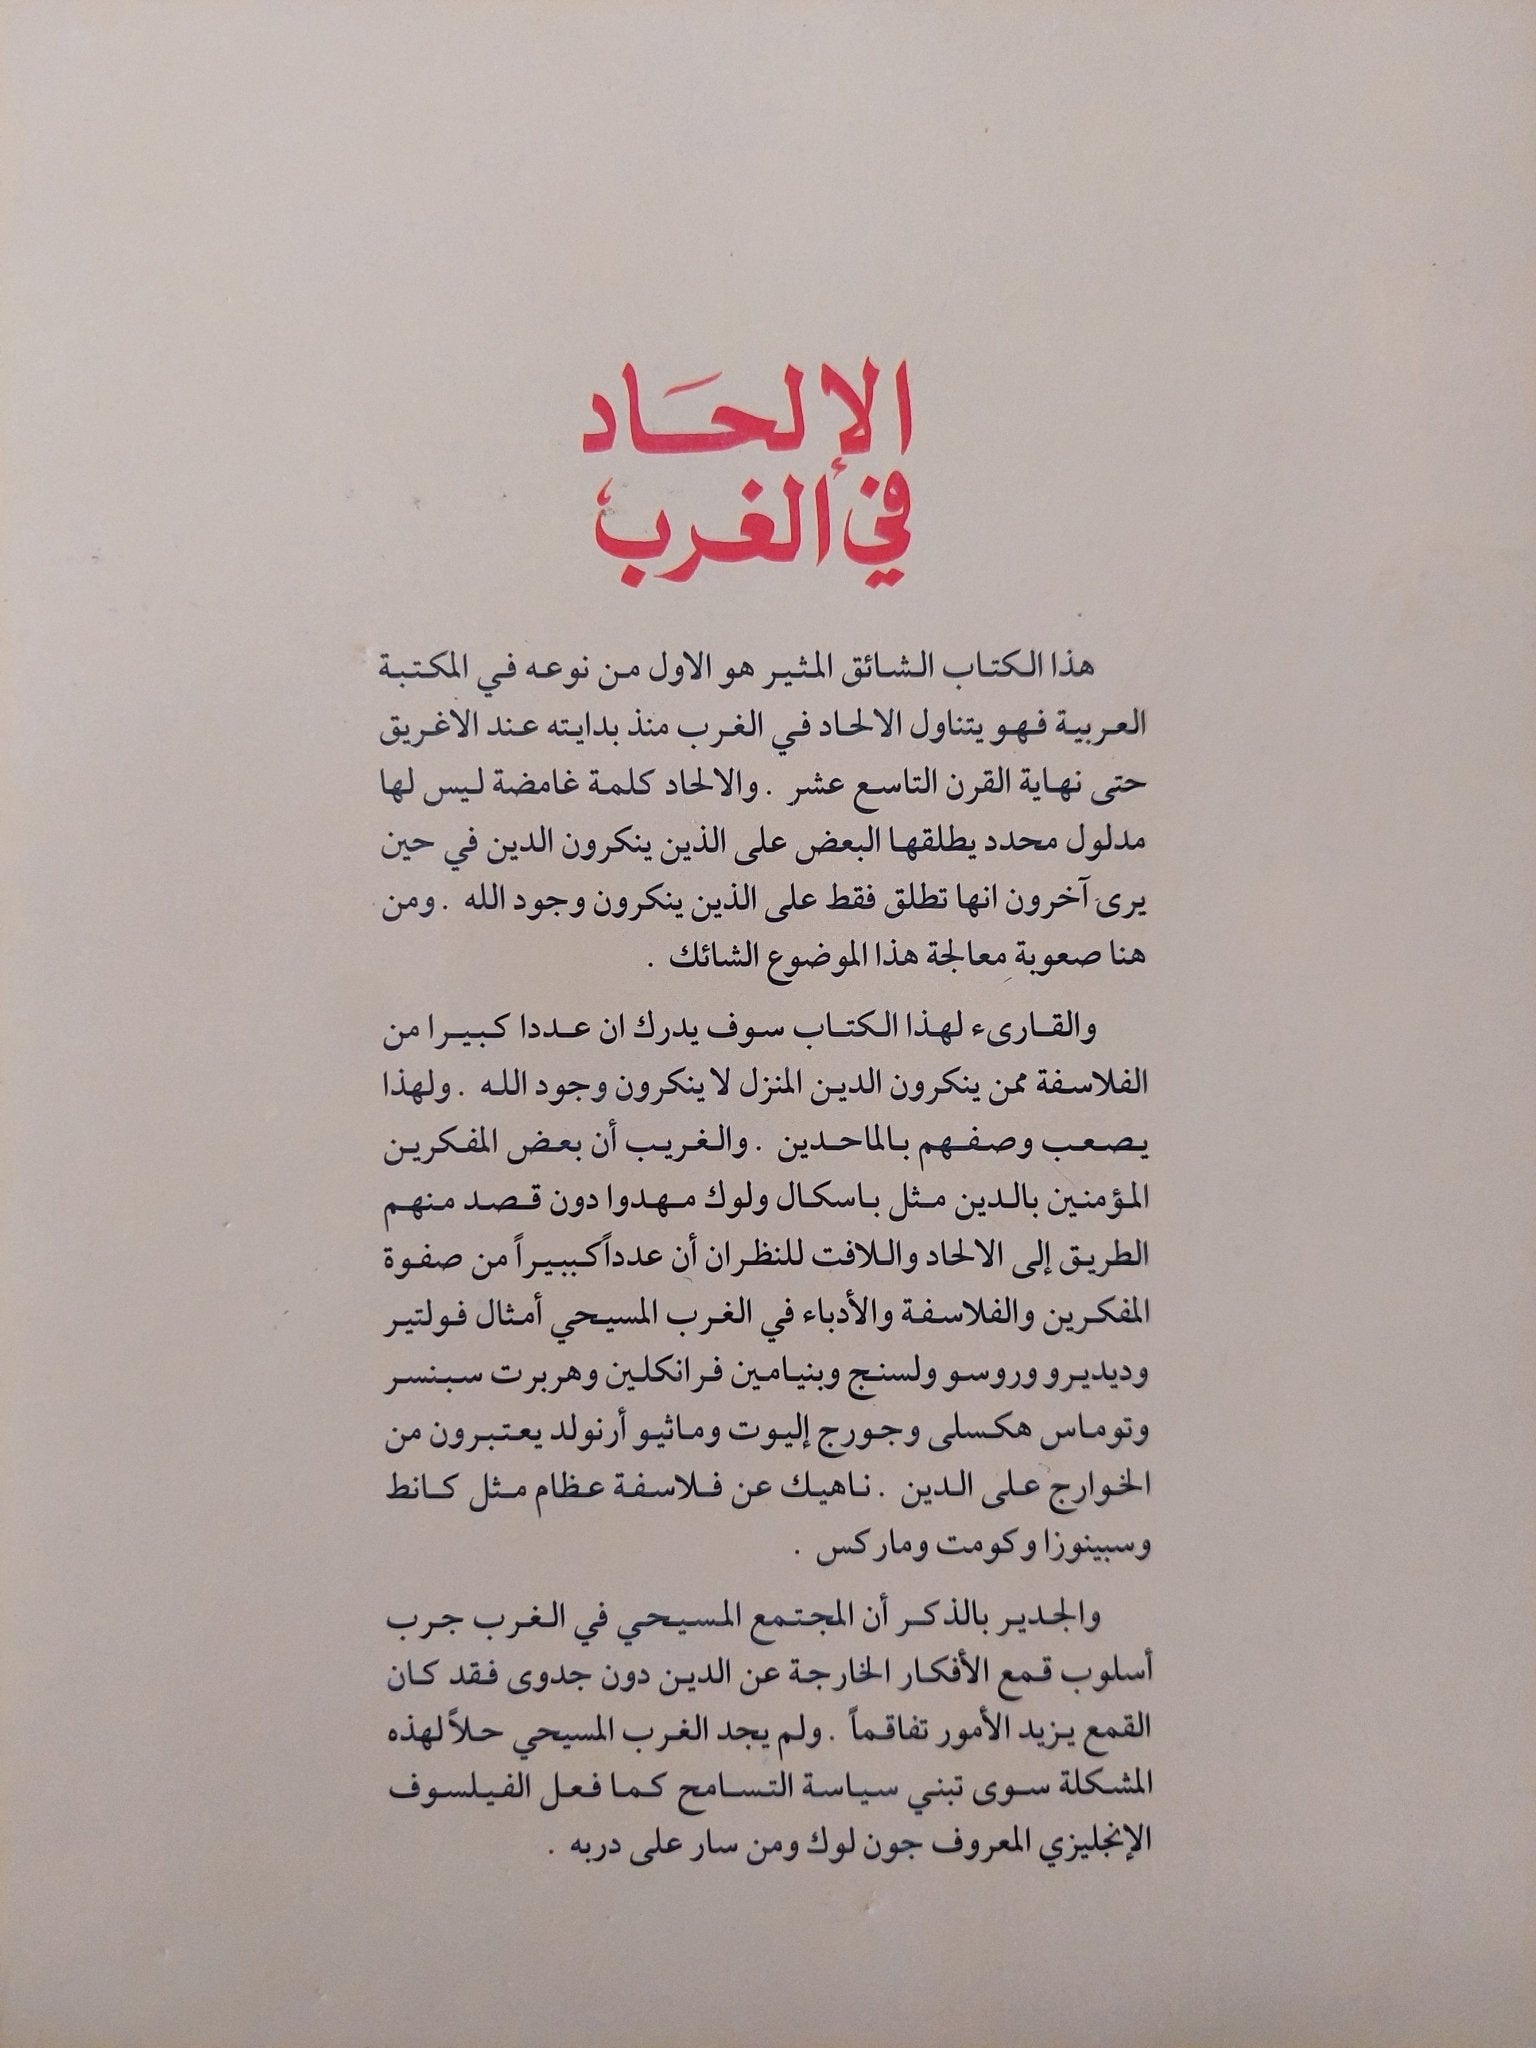 الإلحَاد
في الغرب
هذا الكتاب الشائق المثير هو الاول من نوعه في المكتبة
العربية فهو يتناول الالحاد في الغرب منذ بدايته عند الاغريق
حتى نهاية القرن التاسع عشر . والالحاد كلمة غامضة ليس لها
مدلول محدد يطلقها البعض على الذين ينكرون الدين في حين
يرى آخرون انها تطلق فقط على الذين ينكرون وجود الله . ومن
هنا صعوبة معالجة هذا الموضوع الشائك .
والقارىء لهذا الكتاب سوف يدرك ان عددا كبيرا من
الفلاسفة ممن ينكرون الدين المنزل لا ينكرون وجود الله . ولهذا
يصعب وصفهم بالماحدين . والغريب أن بعض المفكرين
المؤمنين بالدين مثل باسكال ولوك مهدوا دون قصد منهم
الطريق إلى الالحاد واللافت للنظران أن عدداً كببيراً من صفوة
المفكرين والفلاسفة والأدباء في الغرب المسيحي أمثال فولتير
وديديرو وروسو ولسنج وبنيامين فرانكلين وهربرت سبنسر
وتوماس هكسلى وجورج إليوت وماثيو أرنولد يعتبرون من
الخوارج على الدين . ناهيك عن فلاسفة عظام مثل كانط
وسبينوزا وكومت وماركس .
والجدير بالذكر أن المجتمع المسيحي في الغرب جرب
أسلوب قمع الأفكار الخارجة عن الدين دون جدوى فقد كان
القمع يزيد الأمور تفاقماً . ولم يجد الغرب المسيحي حلاً لهذه
المشكلة سوى تبني سياسة التسامح كما فعل الفيلسوف
الإنجليزي المعروف جون لوك ومن سار على دربه .